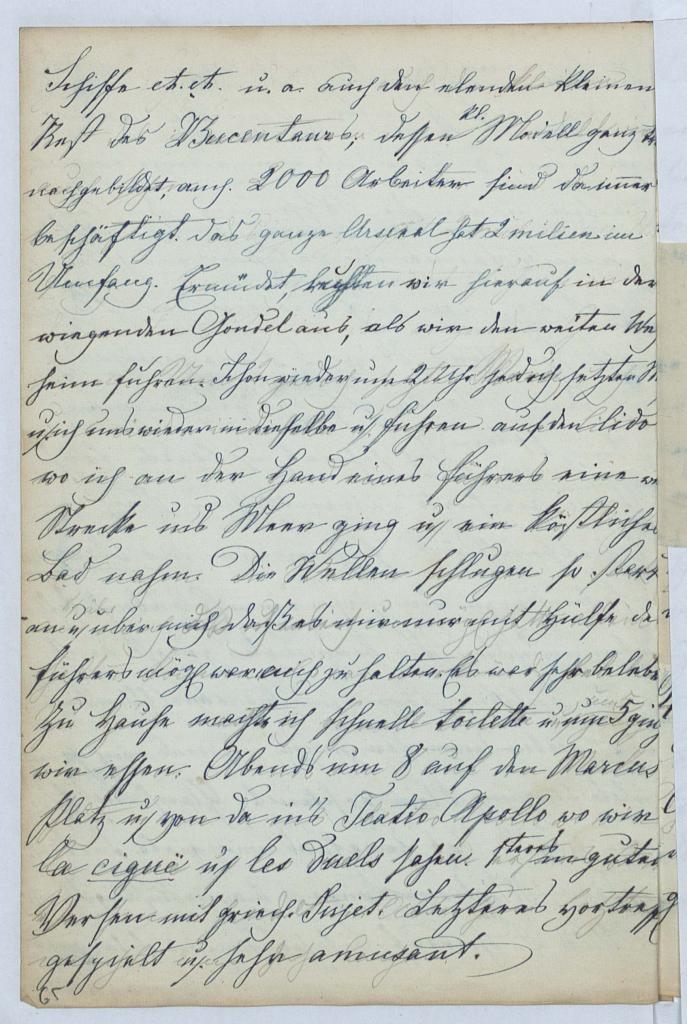 Schiffe etc. etc. u. a. auch den elenden kleinen
Rest des Bucentaurs, dessen kl. Modell ganz
nachgebildet, auch. 2000 Arbeiter sind da immer
beschäftigt. das ganze Arsenal hat 2 milien im
Umfang. Ermüdet, ruhten wir hierauf in der
wiegenden Gondel aus, als wir den weiten We
heim fuhren. Schon wieder um 2 Uhr jedoch setzten
u. ich uns wieder in dieselbe u. fuhren auf den Lido
wo ich an der Hand eines Führers eine
Strecke ins Meer ging u. ein köstliches
Bad nahm. Die Wellen schlugen so star
an u. über mich daß es mir nur mit Hülfe de
Führers mögl war mich zu halten. Es war sehr beleb
Zu Hause machte ich schnell toilette u. um 5 gin
wir essen. Abends um 8 auf den Marcus
Platz u. von da in's Teatro Apollo wo wir
La ciguë u. les Duels sahen. Ersteres in guten
Versen mit griech. Sujet. Letzteres vortreffl
gespielt u. sehr amusant.
65